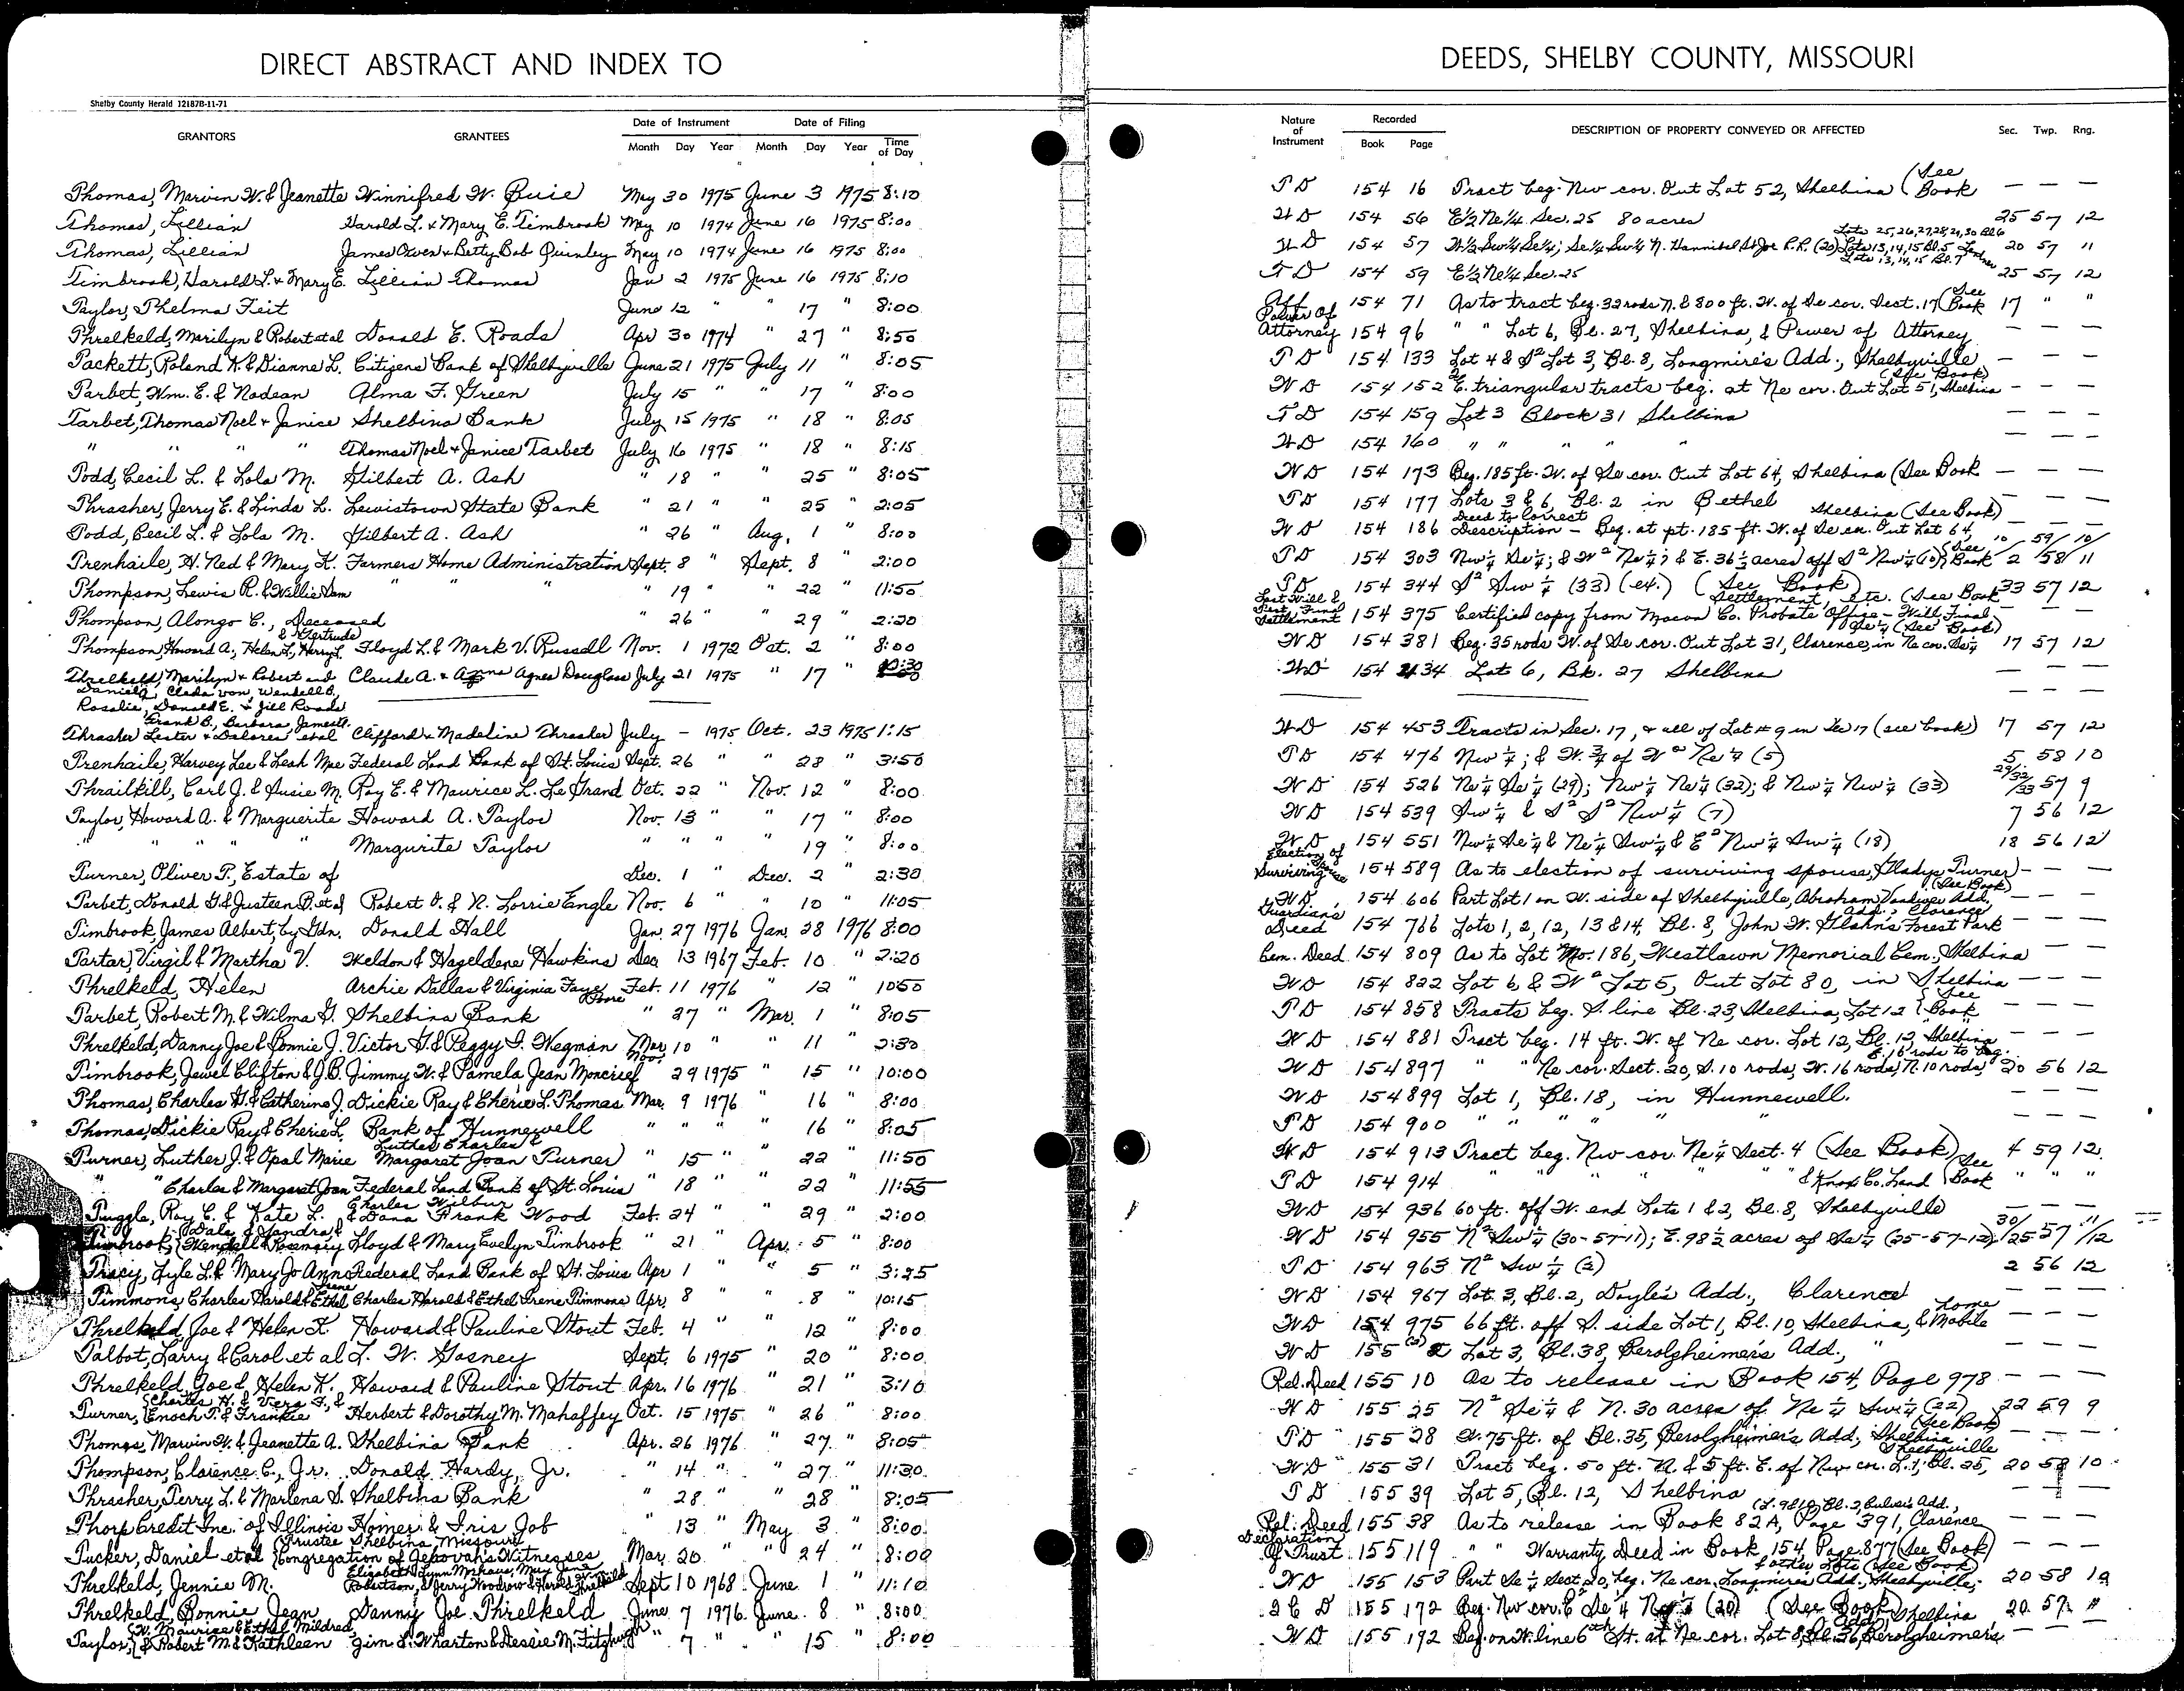 DIRECT ABSTRACT AND INDEX TO
DEEDS, SHELBY COUNTY, MISSOURI
Shelby County Herald 12187B-11-71
GRANTORS GRANTEES Date of Instrument Date of Filing
Month Day Year Month Day Year Time of Day
Nature of Instrument Recorded Book Page DESCRIPTION OF PROPERTY CONVEYED OR AFFECTED Sec. Twp. Rng.
Thomas, Marvin W. & Jeanette Winnifred W. Buie May 30 1975 June 3 1975 8:10 T D 154 16 Tract beg. Nw cor. Out Lot 52, Shelbina (See Book — — —
Thomas, Lillian Harold L. & Mary E. Timbrook May 10 1974 June 16 1975 8:00 W D 154 56 E½ Ne¼ Sec. 25 80 acres 25 57 12
Thomas, Lillian James Owen & Betty Bob Quinley May 10 1974 June 16 1975 8:00 W D 154 57 W½ Sw¼ Se¼; Se¼ Sw¼ N. Hannibal & St Joe R.R. (20) Lots 13, 14, 15 Bl. 5 Lots 25, 26, 27, 28, 29, 30 Bl 6 Lots 13, 14, 15 Bl. 7 20 57 11
Timbrook, Harold L. & Mary E. Lillian Thomas Jan 2 1975 June 16 1975 8:10 T D 154 59 E½ Ne¼ Sec. 25 25 57 12
Taylor, Thelma Feit June 12 " " 17 " 8:00 Aff 154 71 As to tract beg. 32 rods N. & 800 ft. W. of Se cor. Sect. 17 (See Book 17 " "
Threlkeld, Marilyn & Robert et al Donald E. Roads Apr 30 1974 " 27 " 8:50 Power of Attorney 154 96 " " Lot 6, Bl. 27, Shelbina, & Power of Attorney — — —
Tackett, Roland K. & Dianne L. Citizens Bank of Shelbyville June 21 1975 July 11 " 8:05 T D 154 133 Lot 4 & S² Lot 3, Bl. 8, Longmire's Add., Shelbyville — — —
Tarbet, Wm. E. & Nadean Alma F. Green July 15 " " 17 " 8:00 W D 154 152 E. triangular tracts beg. at Ne cor. Out Lot 51, Shelbina (See Book) — — —
Tarbet, Thomas Noel & Janice Shelbina Bank July 15 1975 " 18 " 8:05 T D 154 159 Lot 3 Block 31 Shelbina — — —
" " " " Thomas Noel & Janice Tarbet July 16 1975 " 18 " 8:15 W D 154 160 " " " " " — — —
Todd, Cecil L. & Lola M. Gilbert A. Ash " 18 " " 25 " 8:05 W D 154 173 Beg. 185 ft. W. of Se cor. Out Lot 64, Shelbina (See Book — — —
Thrasher, Jerry E. & Linda L. Lewistown State Bank " 21 " " 25 " 2:05 T D 154 177 Lots 3 & 6, Bl. 2 in Bethel — — —
Todd, Cecil L. & Lola M. Gilbert A. Ash " 26 " Aug. 1 " 8:00 W D 154 186 Deed to Correct Description - Beg. at pt. 185 ft. W. of Se cor. Out Lot 64, Shelbina (See Book) — — —
Trenhaile, H. Ned & Mary K. Farmers Home Administration Sept. 8 " Sept. 8 " 2:00 T D 154 303 Nw¼ Se¼; & W² Ne¼; & E. 36½ acres off S² Nw¼ (10) (See Book 10/2 59/58 10/11
Thompson, Lewis R. & Willie Sam " " " " 19 " " 22 " 11:50 T D 154 344 S² Sw¼ (33) (ex.) (See Book) 33 57 12
Thompson, Alongo C., Deceased " 26 " " 29 " 2:20 Last Will & Test, Final Settlement 154 375 Certified copy from Macon Co. Probate Office - Will, Final Settlement, etc. (See Book — — —
Thompson, Howard A., Helen L., Harry L. & Gertrude Floyd L. & Mark V. Russell Nov. 1 1972 Oct. 2 " 8:00 W D 154 381 Beg. 35 rods W. of Se cor. Out Lot 31, Clarence, in Ne cor. Se¼ Se¼ (See Book) 17 57 12
Threlkeld, Marilyn & Robert and Claude A. & Agnes Douglass July 21 1975 " 17 " W D 154 434 Lot 6, Bk. 27 Shelbina — — —
Wendell B.,
Rosalie, Donald E. & Jill Roads
Thrasher Lester & Dolores et al Frank B., Barbara, James A. Clifford & Madeline Thrasher July - 1975 Oct. 23 1975 1:15 W D 154 453 Tracts in Sec. 17, & all of Lot # 9 in Sec 17 (see book) 17 57 12
Trenhaile, Harvey Lee & Leah Mae Federal Land Bank of St. Louis Sept. 26 " " 28 " 3:50 T D 154 476 Nw¼; & W. ¾ of W² Ne¼ (5) 5 58 10
Thrailkill, Carl J. & Susie M. Roy E. & Maurice L. Le Grand Oct. 22 " Nov. 12 " 8:00 W D 154 526 Ne¼ Se¼ (29); Nw¼ Ne¼ (32); & Nw¼ Nw¼ (33) 29/32/33 57 9
Taylor, Howard A. & Marguerite Howard A. Taylor Nov. 13 " " 17 " 8:00 W D 154 539 Sw¼ & S² S² Nw¼ (7) 7 56 12
" " " " Margurite Taylor " " " " 19 " 8:00 W D 154 551 Nw¼ Se¼ & Ne¼ Sw¼ & E² Nw¼ Sw¼ (18) 18 56 12
Turner, Oliver T., Estate of Dec. 1 " Dec. 2 " 2:30 Election of Surviving Spouse 154 589 As to election of surviving spouse, (Gladys Turner) — — —
Tarbet, Donald G. & Justeen P. et al Robert O. & N. Lorrie Engle Nov. 6 " " 10 " 11:05 W D 154 606 Part Lot 1 on W. side of Shelbyville, Abraham Vandiver Add. (See Book) — — —
Timbrook, James Albert, by Gdn. Donald Hall Jan. 27 1976 Jan. 28 1976 8:00 Guardians Deed 154 766 Lots 1, 2, 12, 13 & 14, Bl. 8, John W. Glahn's Forest Park Add., Clarence — — —
Tartar, Virgil & Martha V. Weldon & Hageldene Hawkins Dec 13 1967 Feb. 10 " 2:20 Cem. Deed 154 809 As to Lot No. 186, Westlawn Memorial Cem., Shelbina — — —
Threlkeld, Helen Archie Dallas & Virginia Faye Moore Feb. 11 1976 " 12 " 10:50 W D 154 822 Lot 6 & W² Lot 5, Out Lot 80, in Shelbina — — —
Tarbet, Robert M. & Wilma G. Shelbina Bank " 27 " Mar. 1 " 8:05 T D 154 858 Tracts beg. S. line Bl. 23, Shelbina, Lot 12 (See Book — — —
Threlkeld, Danny Joe & Bonnie J. Victor G. & Peggy S. Wegman Mar. 10 " " 11 " 2:30 W D 154 881 Tract beg. 14 ft. W. of Ne cor. Lot 12, Bl. 12, Shelbina — — —
Timbrook, Jewel Clifton & J.B. Jimmy W. & Pamela Jean Moncrief Nov. 29 1975 " 15 " 10:00 W D 154 897 " " Ne cor. Sect. 20, S. 10 rods, W. 16 rods, N. 10 rods, E. 16 rods to beg. 20 56 12
Thomas, Charles H. & Catherine J. Dickie Ray & Cherie L. Thomas Mar. 9 1976 " 16 " 8:00 W D 154 899 Lot 1, Bl. 18, in Hunnewell. — — —
Thomas, Dickie Ray & Cherie L. Bank of Hunnewell " " " " 16 " 8:05 T D 154 900 " " " " " — — —
Turner, Luther J. & Opal Marie Luther Charles & Margaret Joan Turner " 15 " " 22 " 11:50 W D 154 913 Tract beg. Nw cor. Ne¼ Sect. 4 (See Book) 4 59 12
" " Charles & Margaret Joan Federal Land Bank of St. Louis " 18 " " 22 " 11:55 T D 154 914 " " " " " " & Knox Co. Land (See Book " " "
Tuggle, Roy C. & Kate L. Charles Wilbur & Dana Frank Wood Feb. 24 " " 29 " 2:00 W D 154 936 60 ft. off W. end Lots 1 & 2, Bl. 8, Shelbyville — — —
Timbrook, (Dale & Sandra, & Wendell & Rosemary Lloyd & Mary Evelyn Timbrook " 21 " Apr. 5 " 8:00 W D 154 955 N² Sw¼ (30-57-11); E. 98½ acres of Se¼ (25-57-12) 30/25 57 11/12
Tracy, Lyle L. & Mary Jo Ann Federal Land Bank of St. Louis Apr 1 " " 5 " 3:25 T D 154 963 N² Sw¼ (2) 2 56 12
Timmons, Charles Harold & Ethel Irene Charles Harold & Ethel Irene Timmons Apr. 8 " " 8 " 10:15 W D 154 967 Lot 3, Bl. 2, Doyle's Add., Clarence — — —
Threlkeld, Joe & Helen K. Howard & Pauline Stout Feb. 4 " " 12 " 8:00 W D 154 975 66 ft. off S. side Lot 1, Bl. 10, Shelbina, & Mobile home — — —
Talbot, Larry & Carol et al L. W. Gosney Sept. 6 1975 " 20 " 8:00 W D 155 Lot 3, Bl. 38, Berolzheimer's Add., " — — —
Threlkeld, Joe & Helen K. Howard & Pauline Stout Apr. 16 1976 " 21 " 3:10 Rel. Deed 155 10 As to release in Book 154, Page 978 — — —
Turner, (Charles H. & Vera F., & Enoch T. & Frankie Herbert & Dorothy M. Mahaffey Oct. 15 1975 " 26 " 8:00 W D 155 25 N² Se¼ & N. 30 acres of Ne¼ Sw¼ (22) 22 59 9
Thomas, Marvin W. & Jeanette A. Shelbina Bank Apr. 26 1976 " 27 " 8:05 T D 155 28 W. 75 ft. of Bl. 35, Berolzheimer's Add., Shelbina (See Book) — — —
Thompson, Clarence C., Jr. Donald Hardy, Jr. " 14 " " 27 " 11:30 W D 155 31 Tract beg. 50 ft. N. & 5 ft. E. of Nw cor. L. 1, Bl. 25, Shelbyville 20 58 10
Thrasher, Terry L. & Marlena S. Shelbina Bank " 28 " " 28 " 8:05 T D 155 39 Lot 5, Bl. 12, Shelbina — — —
Thorp Credit Inc. of Illinois Homer & Iris Job " 13 " May 3 " 8:00 Rel. Deed 155 38 As to release in Book 82A, Page 391, Clarence — — —
Tucker, Daniel et al (Trustee Shelbina, Missouri Congregation of Jehovah's Witnesses Mar. 20 " " 24 " 8:00 Declaration Of Trust 155 119 " " Warranty Deed in Book 154, Page 877 (See Book) — — —
Threlkeld, Jennie M. Robertson, & Jerry Woodrow & Harold Threlkeld Sept 10 1968 June 1 " 11:10 W D 155 153 Part Se¼ Sect. 20, beg. Ne cor. Longmire's Add., Shelbyville, & other Lots (See Book) 20 58 10
Threlkeld, Bonnie Jean Danny Joe Threlkeld June 7 1976 June 8 " 8:00 2 C D 155 172 Beg. Nw cor. E² Se¼ (20) (See Book) 20 57 11
Taylor, (W. Maurice & Ethel Mildred, & Robert M. & Kathleen Jim S. Wharton & Dessie M. Fitzhugh " 7 " " 15 " 8:00 W D 155 192 Beg. on W. line 6th St. at Ne cor. Lot 8, Bl. 36, Berolzheimer's Add., Shelbina — — —